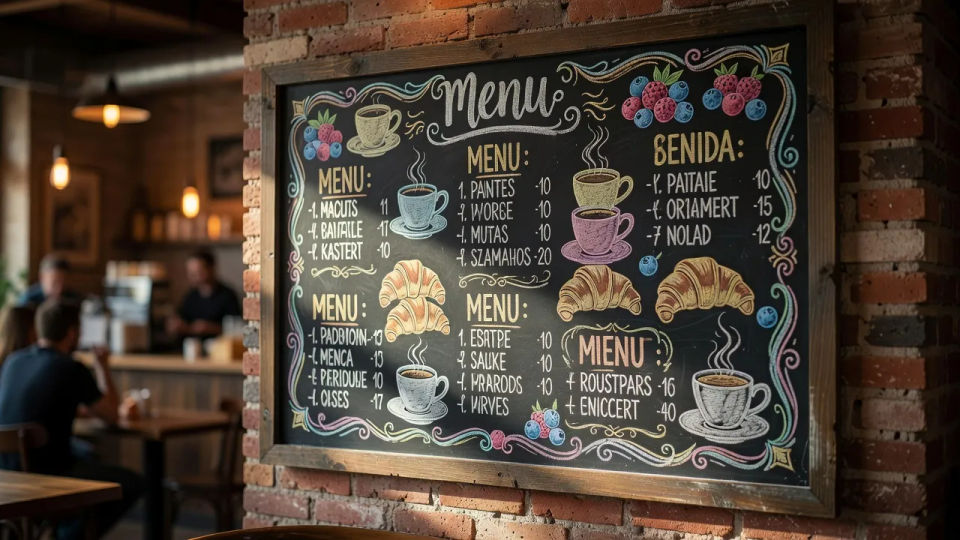 Menu
MENU:
-1. MACUTS 11
-1. BAITAILE -17
-1. KASTERT 10
MENU:
1. PANTES -10
1. WORBE -10
1. MUTAS -10
-1. SZAMAHOS -20
BENIDA:
-1. PAITAIE -10
-1. ORIAMERT -15
-7 NOLAD -12
MENU:
-1. MENCA -15
-1. OISES -17
MENU:
1. ESTPE 10
-1. SALKE -10
-1. WRVES -10
MIENU:
+ ROUSTPARS -16
+ ENICCERT -40